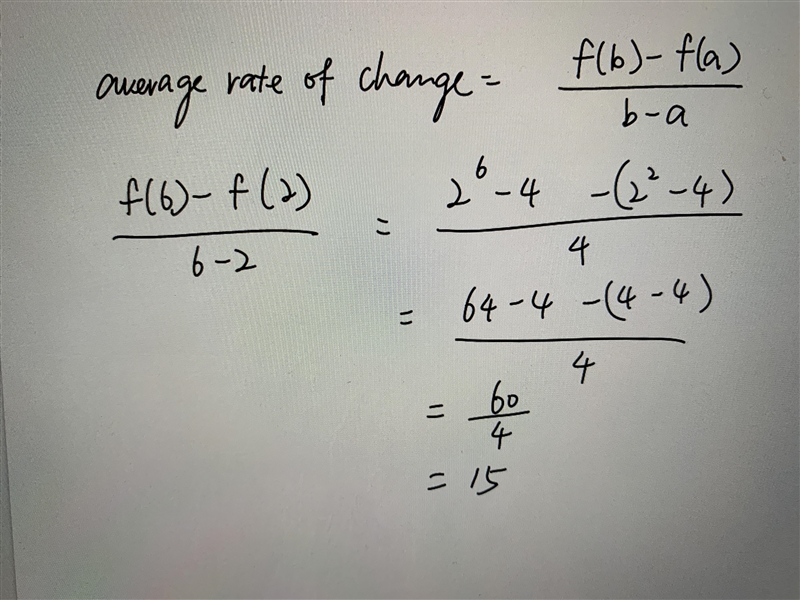 average rate of change = \frac{f(b) - f(a)}{b - a}
\frac{f(6) - f(2)}{6 - 2} = \frac{2^6 - 4 - (2^2 - 4)}{4}
= \frac{64 - 4 - (4 - 4)}{4}
= \frac{60}{4}
= 15